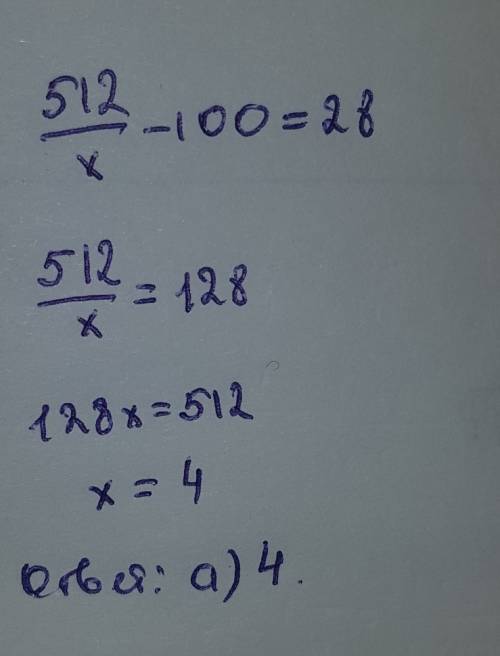 512/x - 100 = 28
512/x = 128
128x = 512
x = 4
Ответ: а) 4.